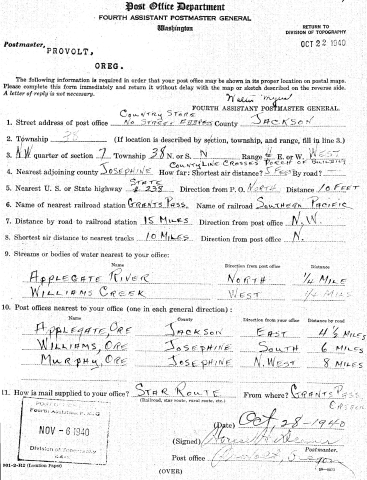 Post Office Department
FOURTH ASSISTANT POSTMASTER GENERAL
Washington
RETURN TO
DIVISION OF TOPOGRAPHY
OCT 22 1940
Postmaster,
PROVOLT,
OREG.
The following information is required in order that your post office may be shown in its proper location on postal maps.
Please complete this form immediately and return it without delay with the map or sketch described on the reverse side.
A letter of reply is not necessary.
FOURTH ASSISTANT POSTMASTER GENERAL.
COUNTRY STORE
1. Street address of post office NO STREET County JACKSON
2. Township 38 (If location is described by section, township, and range, fill in line 3.)
3. NW quarter of section 7 Township 38 N. or S. N Range 4 E. or W. WEST
COUNTY LINE CROSSES PORCH OF BUILDING
4. Nearest adjoining county JOSEPHINE How far: Shortest air distance? 5 FEET By road?
STATE
5. Nearest U. S. or State highway # 238 Direction from P. O. NORTH Distance 10 FEET
6. Name of nearest railroad station GRANTS PASS Name of railroad SOUTHERN PACIFIC
7. Distance by road to railroad station 15 MILES Direction from post office N.W.
8. Shortest air distance to nearest tracks 10 MILES Direction from post office N.
9. Streams or bodies of water nearest to office:
Name Direction from post office Distance
APPLEGATE RIVER NORTH 1/4 MILE
WILLIAMS CREEK WEST 1/4 MILE
10. Post offices nearest to your office (one in each general direction):
Name County Direction from your office Distance by road
APPLEGATE, ORE JACKSON EAST 4 1/2 MILES
WILLIAMS, ORE JOSEPHINE SOUTH 6 MILES
MURPHY, ORE JOSEPHINE N. WEST 8 MILES
11. How is mail supplied to your office? STAR ROUTE From where? GRANTS PASS
(Railroad, star route, rural route, etc.)
(Date) Oct, 28-1940
Fourth Assistant P. M. G.
NOV - 6 1940
Division of Topography
(Signed)
Postmaster.
Post office Provolt, Oregon
(OVER)